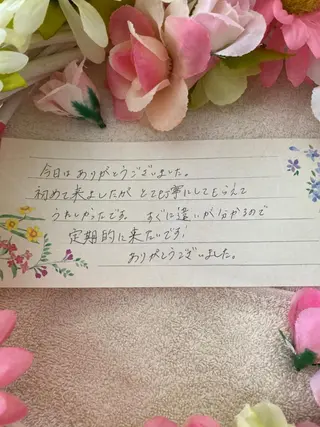 今日は ありがとうございました。
初めて来ましたが とても丁寧にしてもらえて
うれしかったです。 すぐに違いがわかるので
定期的に来たいです!
ありがとうございました。